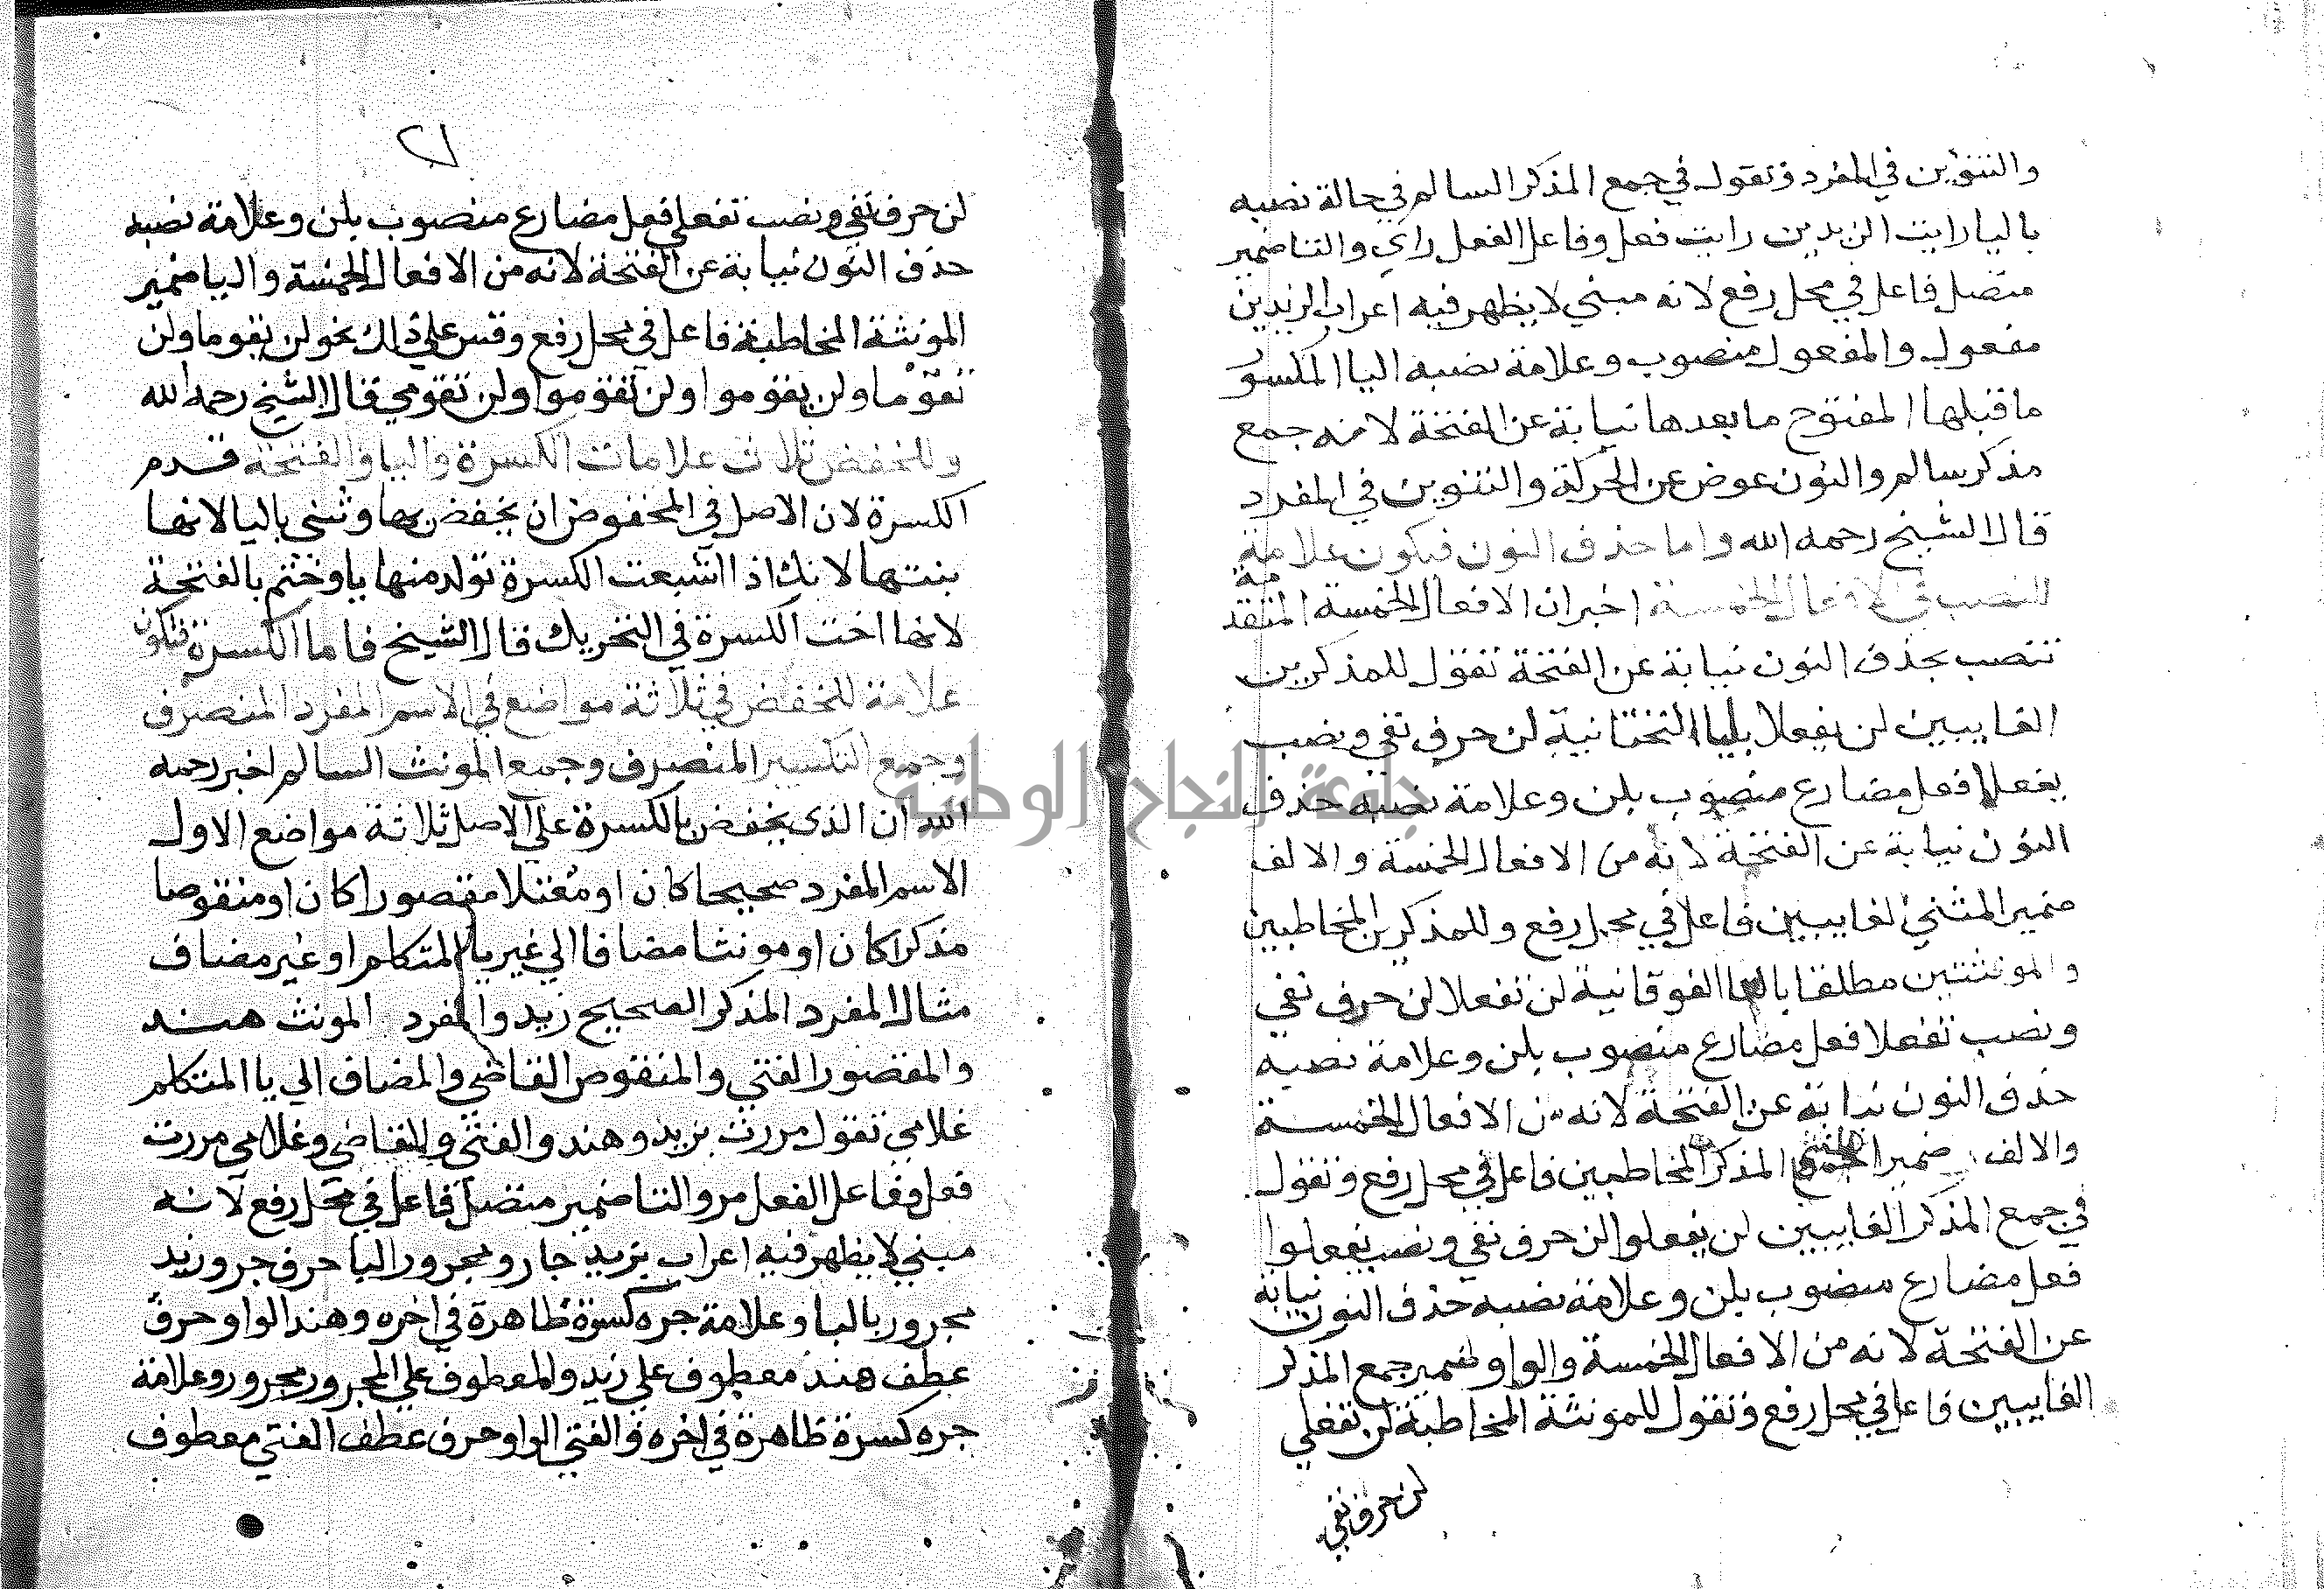 والتنوين في المفرد وتقول في جمع المذكر السالم في حالة نصبه
باليا رايت الزيدين رايت فعل وفاعل الفعل راي والتا ضمير
متصل فاعل في محل رفع لانه مبني لا يظهر فيه اعراب الزيدين
مفعول والمفعول منصوب وعلامة نصبه اليا المكسور
ما قبلها المفتوح ما بعدها نيابة عن الفتحة لانه جمع
مذكر سالم والنون عوض عن الحركة والتنوين في المفرد
قال الشيخ رحمه الله واما حذف النون فيكون علامة
للنصب في الافعال الخمسة اخبر ان الافعال الخمسة المتقدمة
تنصب بحذف النون نيابة عن الفتحة تقول للمذكرين
الغايبين لن يفعلا باليا التحتانية لن حرف نفي ونصب
يفعلا فعل مضارع منصوب بلن وعلامة نصبه حذف
النون نيابة عن الفتحة لانه من الافعال الخمسة والالف
ضمير المثني الغايبين فاعل في محل رفع وللمذكرين المخاطبين
والمونثتين مطلقا بالتا الفوقانية لن تفعلا لن حرف نفي
ونصب تفعلا فعل مضارع منصوب بلن وعلامة نصبه
حذف النون نيابة عن الفتحة لانه من الافعال الخمسة
والالف ضمير المذكر المخاطبين فاعل في محل رفع وتقول
في جمع المذكر الغايبين لن يفعلوا لن حرف نفي ونصب يفعلوا
فعل مضارع منصوب بلن وعلامة نصبه حذف النون نيابة
عن الفتحة لانه من الافعال الخمسة والواو ضمير جمع المذكر
الغايبين فاعل في محل رفع وتقول للمونثة المخاطبة لن تفعلي
لن حرف نفي
٢١
لن حرف نفي ونصب تفعلي فعل مضارع منصوب بلن وعلامة نصبه
حذف النون نيابة عن الفتحة لانه من الافعال الخمسة واليا ضمير
المونثة المخاطبة فاعل في محل رفع وقس علي ذلك نحو لن يقوما ولن
تقوما ولن يقوموا ولن تقوموا ولن تقومي قال الشيخ رحمه الله
وللخفض ثلاث علامات الكسرة واليا والفتحة قدم
الكسرة لان الاصل في المخفوض ان يخفض بها وثني باليا لانها
بنتها لانك اذا اشبعت الكسرة تولد منها يا وختم بالفتحة
لانها اخت الكسرة في التحريك قال الشيخ فاما الكسرة فتكون
علامة للخفض في ثلاثة مواضع في الاسم المفرد المنصرف
وجمع التكسير المنصرف وجمع المونث السالم اخبر رحمه
الله ان الذي يخفض بالكسرة علي الاصل ثلاثة مواضع الاول
الاسم المفرد صحيحا كان او معتلا مقصورا كان او منقوصا
مذكرا كان او مونثا مضافا الي غير يا المتكلم او غير مضاف
مثال المفرد المذكر الصحيح زيد والمفرد المونث هند
والمقصور الفتي والمنقوص القاضي والمضاف الي يا المتكلم
غلامي تقول مررت بزيد وهند والفتي والقاضي وغلامي مررت
فعل وفاعل الفعل مر والتا ضمير متصل فاعل في محل رفع لانه
مبني لا يظهر فيه اعراب بزيد جار ومجرور البا حرف جر وزيد
مجرور بالبا وعلامة جره كسرة ظاهرة في اخره وهند الواو حرف
عطف هند معطوف علي زيد والمعطوف علي المجرور مجرور وعلامة
جره كسرة ظاهرة في اخره والفتي الواو حرف عطف الفتي معطوف
جامعة النجاح الوطنية